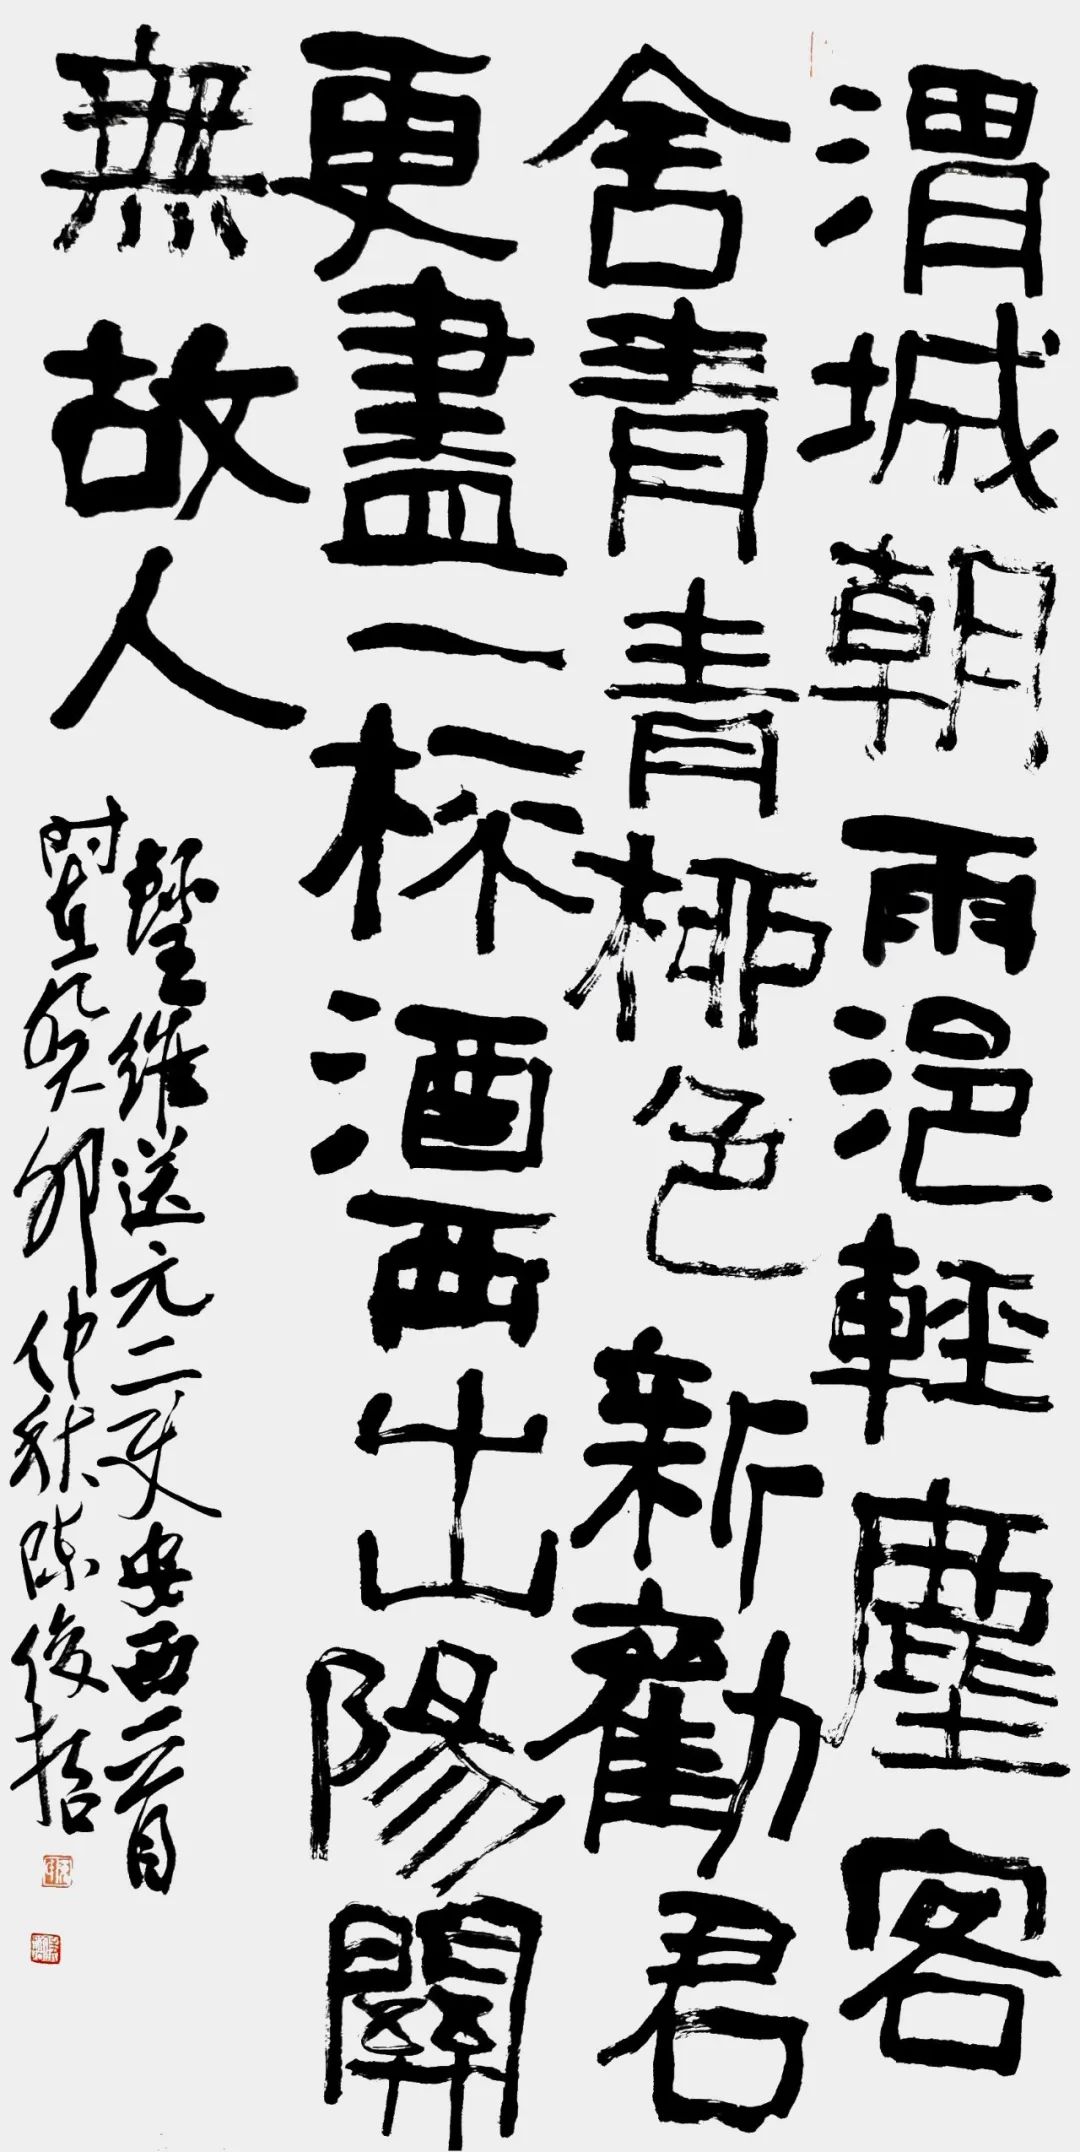 渭城朝雨浥輕塵客
舍青青柳色新勸君
更盡一杯酒西出陽關
無故人
王維送元二使安西一首
时在癸卯仲秋陳俊哲